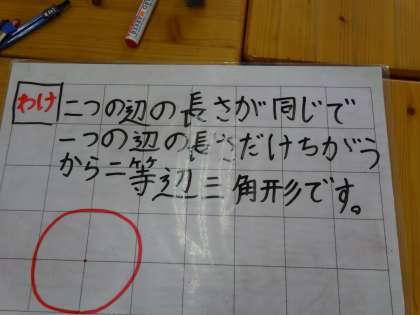 わけ
二つの辺の長さが同じで
一つの辺の長さだけちがう
から二等辺三角形です。